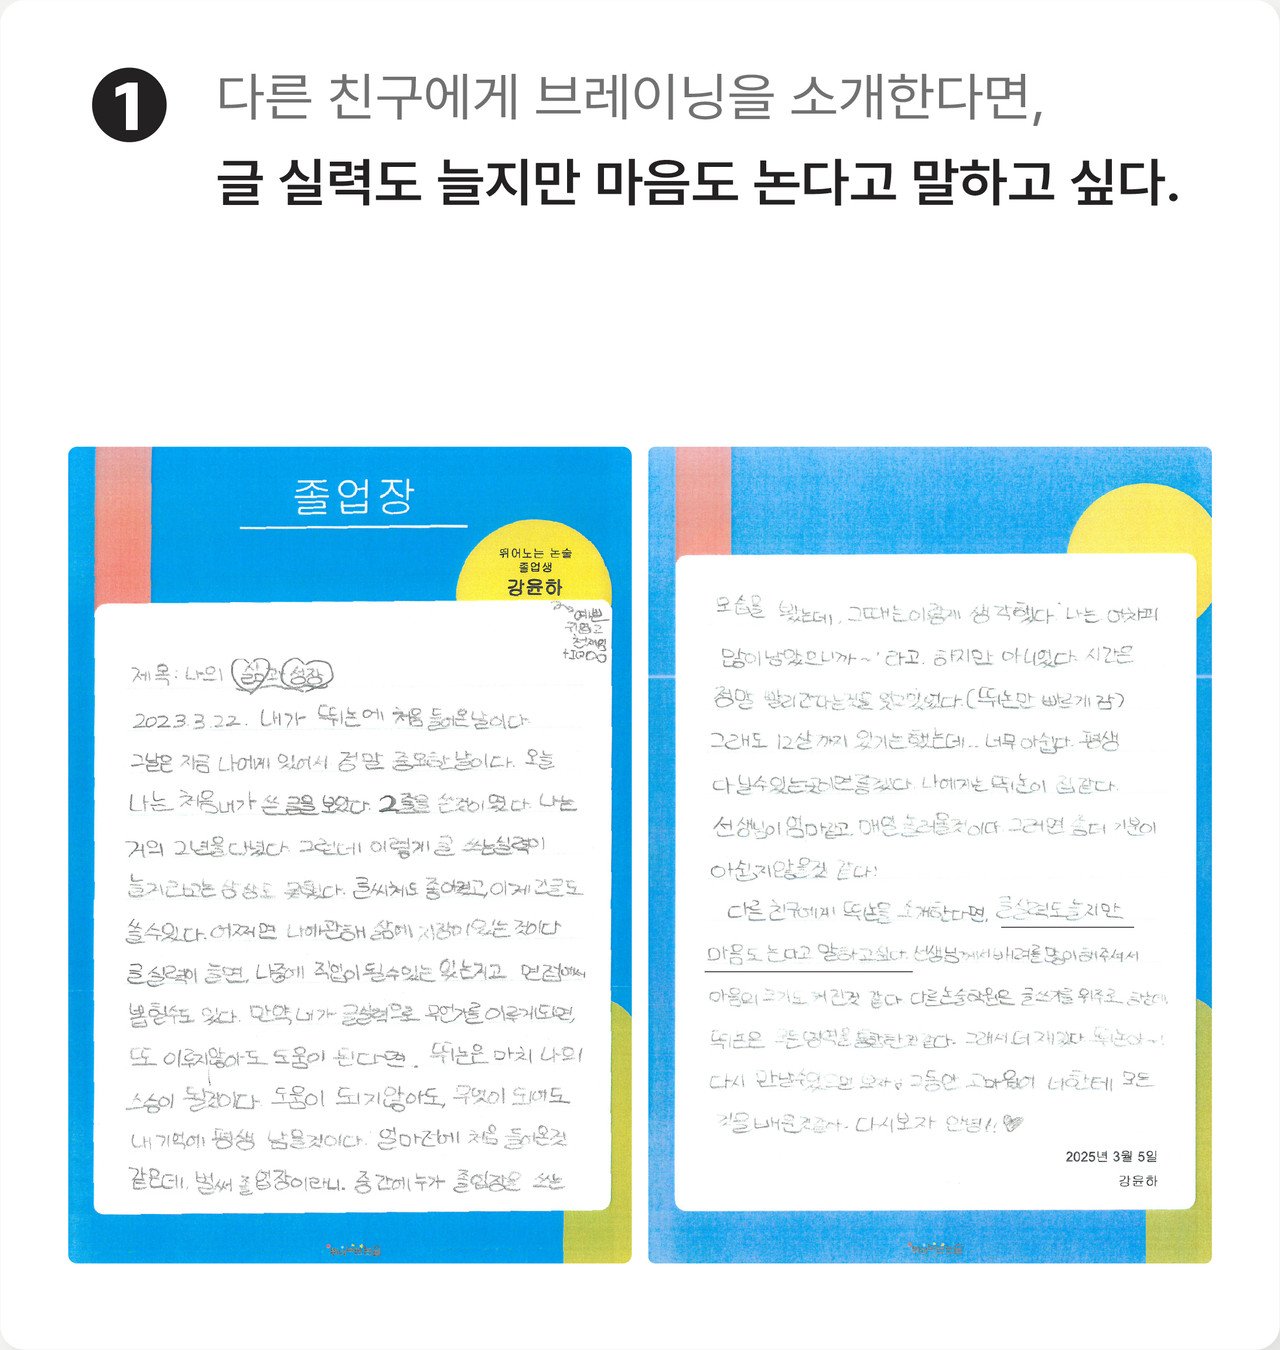 1
다른 친구에게 브레이닝을 소개한다면,
글 실력도 늘지만 마음도 논다고 말하고 싶다.
졸업장
뛰어노는 논술
졸업생
강윤하
예쁜
귀엽고
제목: 나의 삶과 성장
2023.3.22. 내가 뛰논에 처음 들어온날이다.
그날은 지금 나에게 있어서 정말 중요한날이다. 오늘
나는 처음내가 쓴 글을 보았다. 2줄을 쓴것이 였다. 나는
거의 2년을 다녔다. 그런데 이렇게 글 쓰는실력이
늘거라고는 상상도 못했다. 글씨체도 좋아졌고, 이제 긴글도
쓸수있다. 어쩌면 나에관해 삶에 지장이 있는 것이다
글실력이 늘면, 나중에 직업이 될수있는 있는지고 면접에서
뽑힐수도 있다. 만약 내가 글실력으로 무언가를 이루게되면,
또 이루지않아도 도움이 된다면. 뛰논은 마치 나의
스승이 될것이다. 도움이 되지않아도, 무엇이 되어도
내 기억에 평생 남을것이다. 얼마전에 처음 들어온것
같은데, 벌써 졸업장이라니. 중간에 누가 졸업장을 쓰는
모습을 봤는데, 그때는 이렇게 생각했다. '나는 어차피
많이남았으니까~' 라고. 하지만 아니었다. 시간은
정말 빨리간다는것을 잊고있었다. (뛰논만 빠르게 감)
그래도 12살 까지 있기는했는데.. 너무 아쉽다. 평생
다닐수있는곳이면좋겠다. 나에게는 뛰논이 집같다.
선생님이 엄마같고. 매일 놀러올것이다. 그러면 좀더 기분이
아쉽지않을것 같다!
다른 친구에게 뛰논을 소개한다면, 글실력도늘지만
마음도 논다고 말하고싶다. 선생님께서 배려를많이해주셔서
마음의 크기도 커진것 같다. 다른논술학원은 글쓰기를 위주로 하는데,
뛰논은 모든 영역을 같다. 그래서 더 재밌다. 뛰논아~!
다시 만날수있으면 보자. 그동안 고마웠어 너한테 모든
것을 배운것같아. 다시보자 안녕!!
2025년 3월 5일
강윤하